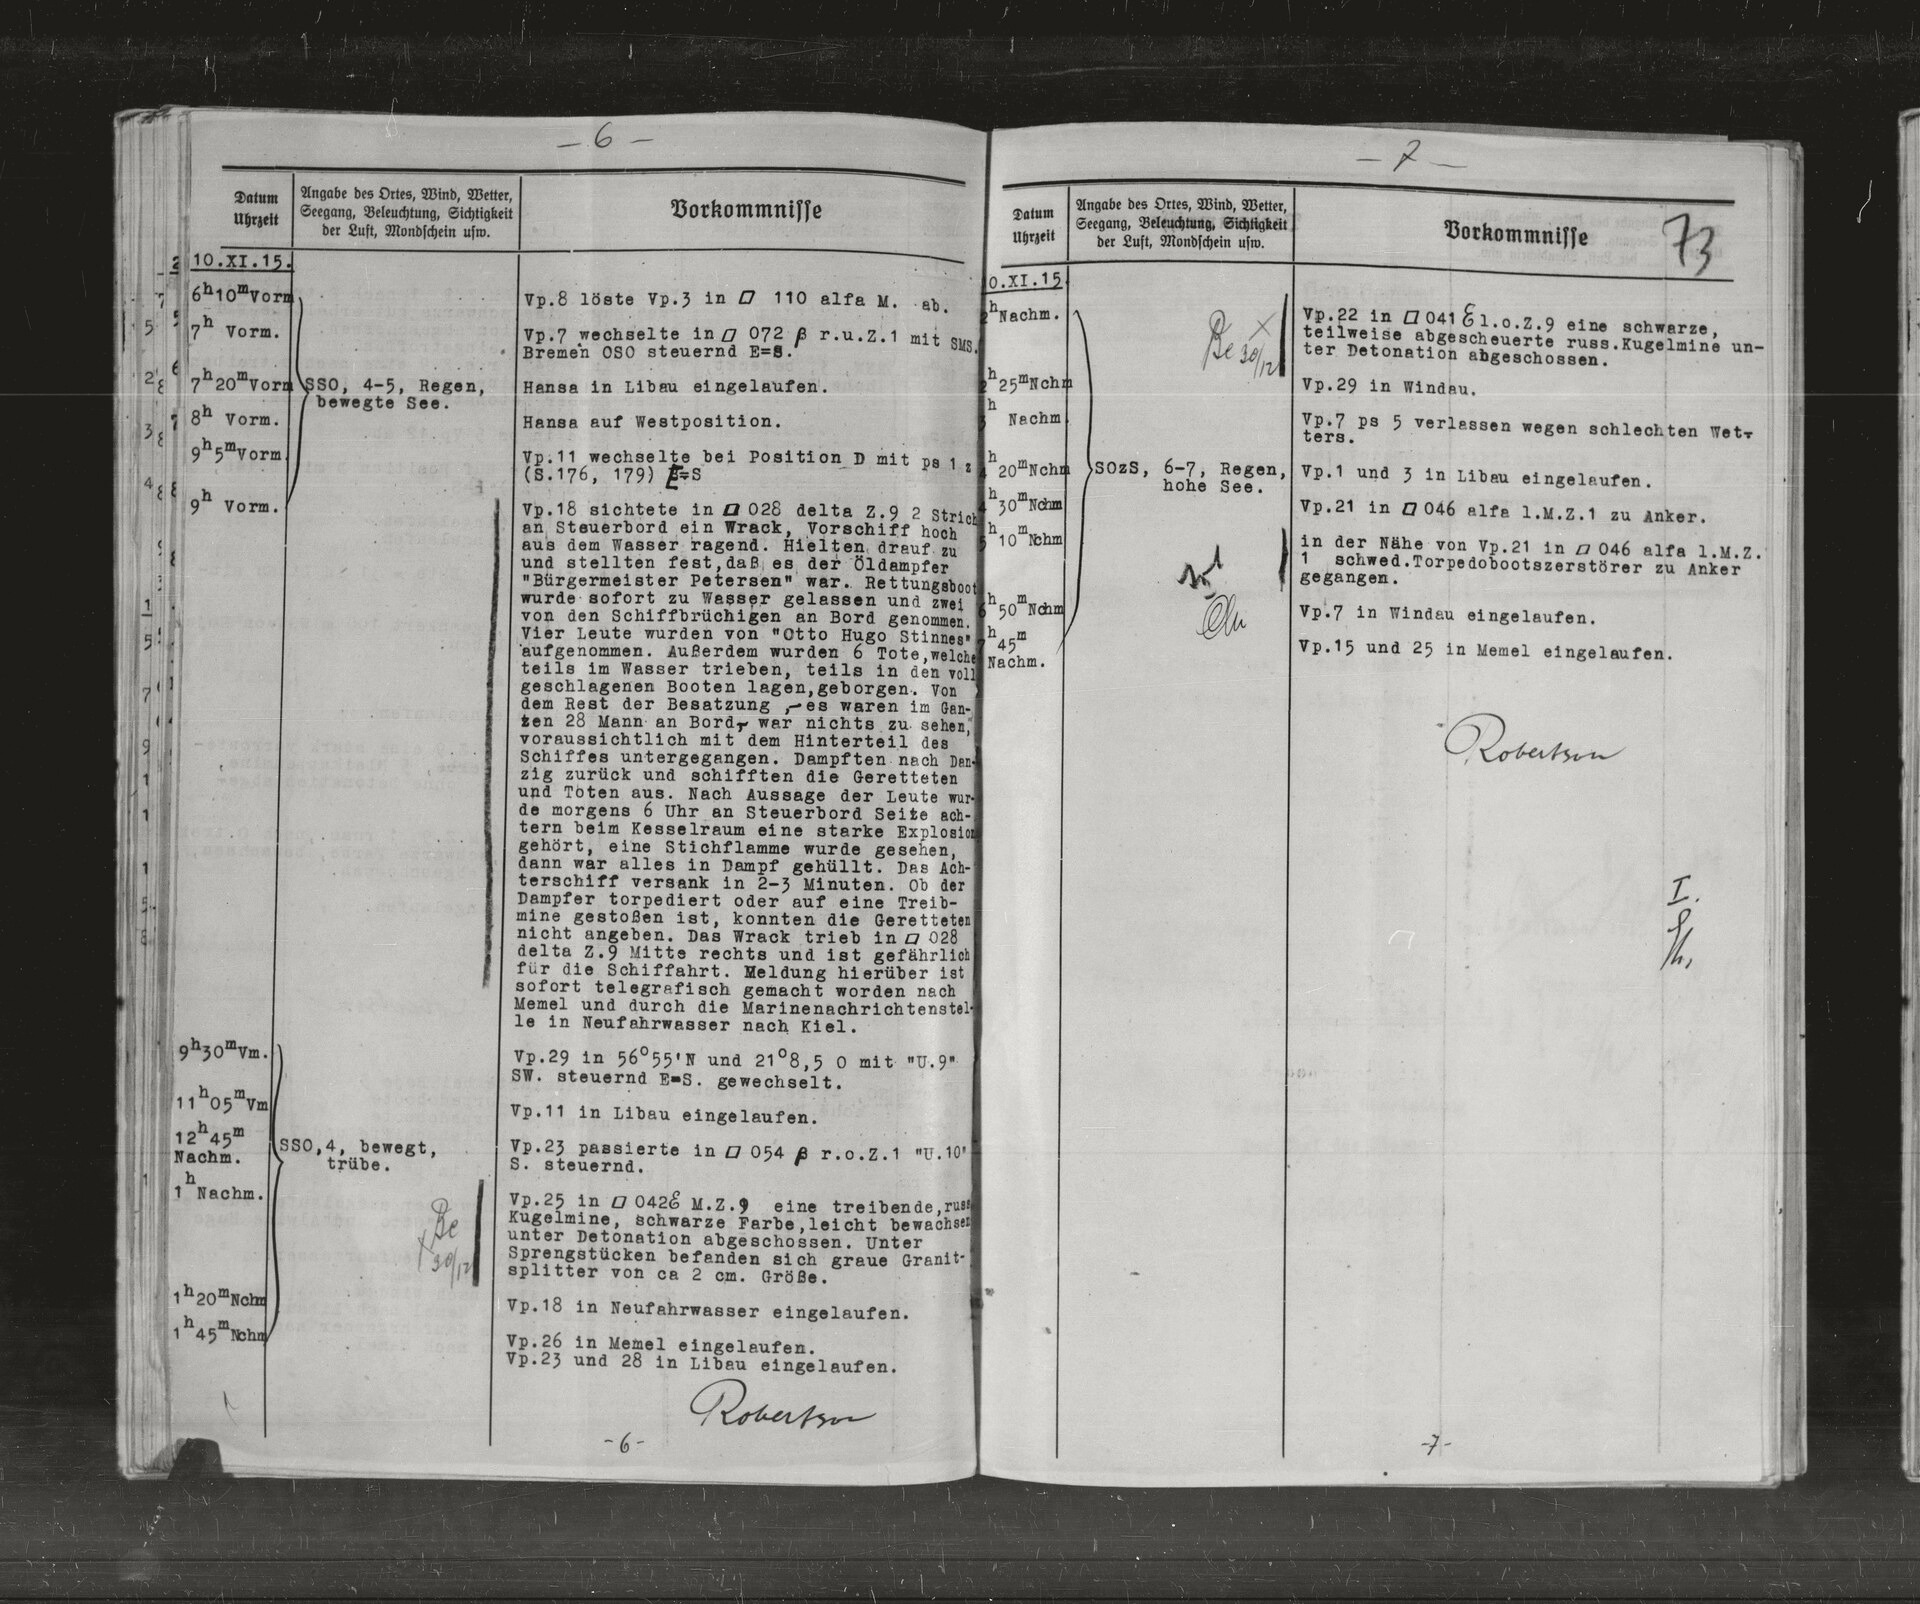 - 6 -
Datum
Uhrzeit
Angabe des Ortes, Wind, Wetter,
Seegang, Beleuchtung, Sichtigkeit
der Luft, Mondschein usw.
Vorkommnisse
10.XI.15.
6h10mVorm
Vp.8 löste Vp.3 in □ 110 alfa M. ab.
7h Vorm.
Vp.7 wechselte in □ 072 β r.u.Z.1 mit SMS.
Bremen OSO steuernd E=S.
7h20mVorm
SSO, 4-5, Regen,
bewegte See.
Hansa in Libau eingelaufen.
8h Vorm.
Hansa auf Westposition.
9h5mVorm
Vp.11 wechselte bei Position D mit ps 1 z
(S.176, 179) E=S
9h Vorm.
Vp.18 sichtete in □ 028 delta Z.9 2 Strich
an Steuerbord ein Wrack, Vorschiff hoch
aus dem Wasser ragend. Hielten drauf zu
und stellten fest,daß es der Öldampfer
"Bürgermeister Petersen" war. Rettungsboot
wurde sofort zu Wasser gelassen und zwei
von den Schiffbrüchigen an Bord genommen.
Vier Leute wurden von "Otto Hugo Stinnes"
aufgenommen. Außerdem wurden 6 Tote,welche
teils im Wasser trieben, teils in den voll
geschlagenen Booten lagen,geborgen. Von
dem Rest der Besatzung ,- es waren im Gan-
zen 28 Mann an Bord,- war nichts zu sehen,
voraussichtlich mit dem Hinterteil des
Schiffes untergegangen. Dampften nach Dan-
zig zurück und schifften die Geretteten
und Toten aus. Nach Aussage der Leute wur-
de morgens 6 Uhr an Steuerbord Seite ach-
tern beim Kesselraum eine starke Explosion
gehört, eine Stichflamme wurde gesehen,
dann war alles in Dampf gehüllt. Das Ach-
terschiff versank in 2-3 Minuten. Ob der
Dampfer torpediert oder auf eine Treib-
mine gestoßen ist, konnten die Geretteten
nicht angeben. Das Wrack trieb in □ 028
delta Z.9 Mitte rechts und ist gefährlich
für die Schiffahrt. Meldung hierüber ist
sofort telegrafisch gemacht worden nach
Memel und durch die Marinenachrichtenstel-
le in Neufahrwasser nach Kiel.
9h30mVm.
Vp.29 in 56°55'N und 21°8,5 O mit "U.9"
SW. steuernd E=S. gewechselt.
11h05mVm
Vp.11 in Libau eingelaufen.
12h45m
Nachm.
SSO,4, bewegt,
trübe.
Vp.23 passierte in □ 054 β r.o.Z.1 "U.10"
S. steuernd.
1h Nachm.
Be
x 30/12
Vp.25 in □ 042ε M.Z.9 eine treibende,russ
Kugelmine, schwarze Farbe,leicht bewachsen
unter Detonation abgeschossen. Unter
Sprengstücken befanden sich graue Granit-
splitter von ca 2 cm. Größe.
1h20mNchm
Vp.18 in Neufahrwasser eingelaufen.
1h45mNchm
Vp.26 in Memel eingelaufen.
Vp.23 und 28 in Libau eingelaufen.
Robertson
-6-
- 7 -
Datum
Uhrzeit
Angabe des Ortes, Wind, Wetter,
Seegang, Beleuchtung, Sichtigkeit
der Luft, Mondschein usw.
Vorkommnisse
73
0.XI.15
2hNachm.
Be x
30/12
Vp.22 in □ 041 ε l.o.Z.9 eine schwarze,
teilweise abgescheuerte russ.Kugelmine un-
ter Detonation abgeschossen.
h25mNchm
Vp.29 in Windau.
h Nachm
Vp.7 ps 5 verlassen wegen schlechten Wet-
ters.
h20mNchm
SOzS, 6-7, Regen,
hohe See.
Vp.1 und 3 in Libau eingelaufen.
h30mNchm
Vp.21 in □ 046 alfa l.M.Z.1 zu Anker.
h10mNchm
in der Nähe von Vp.21 in □ 046 alfa l.M.Z.
1 schwed.Torpedobootszerstörer zu Anker
gegangen.
h50mNchm
Vp.7 in Windau eingelaufen.
h45m
Nachm.
Vp.15 und 25 in Memel eingelaufen.
Robertson
I.
-7-